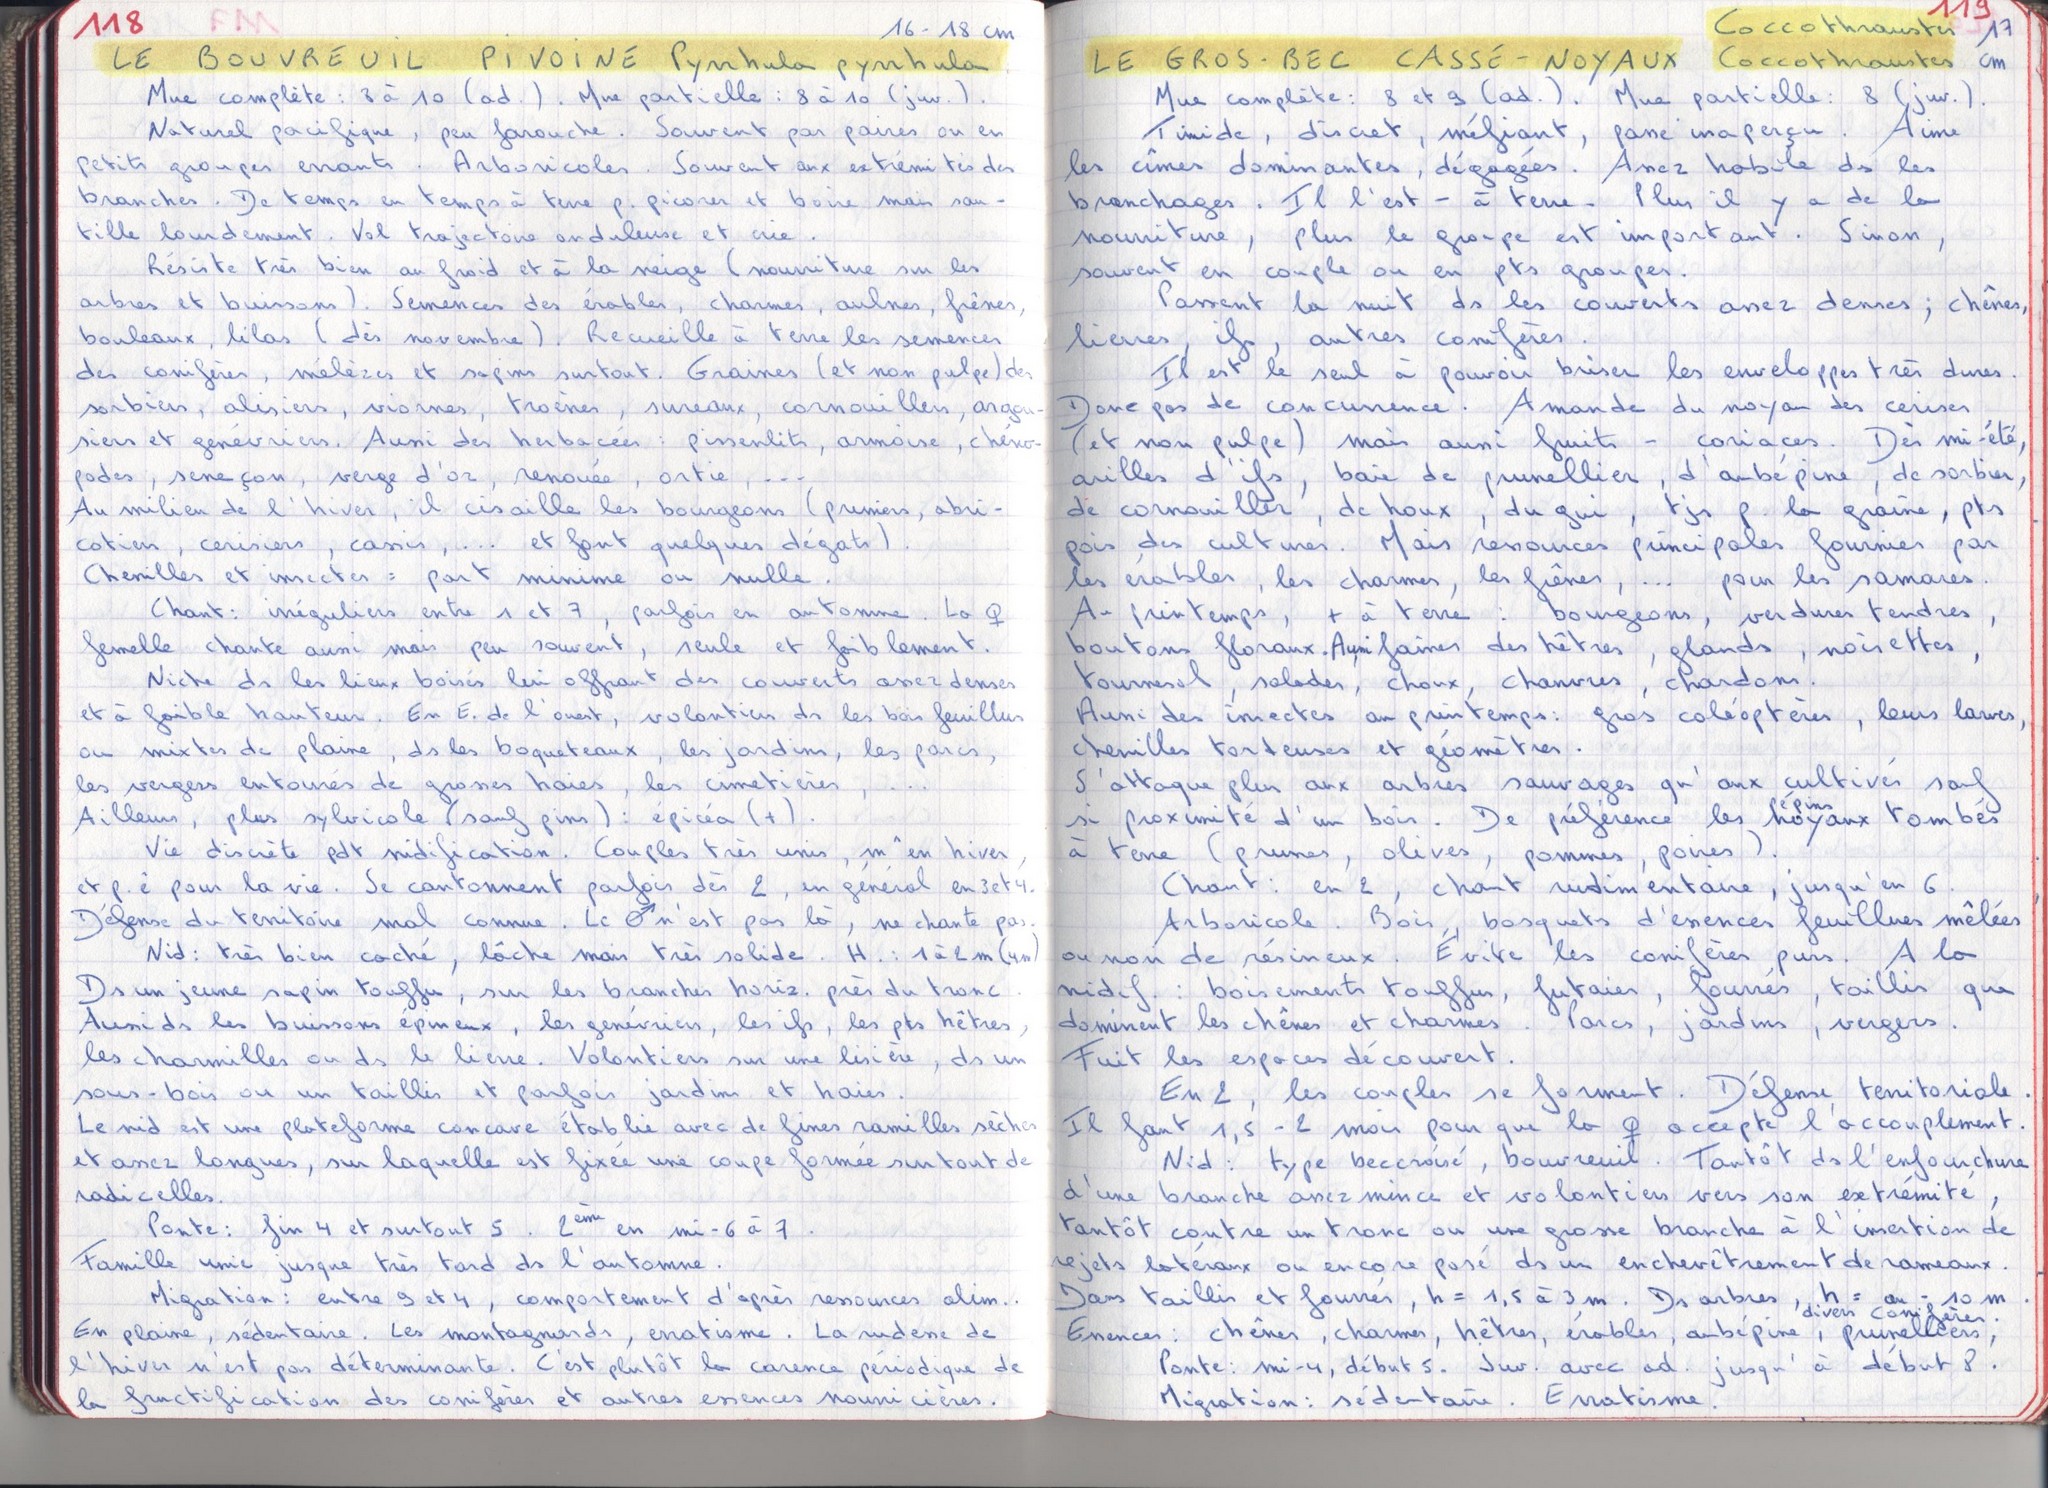 118
16-18 cm
LE BOUVREUIL PIVOINE Pyrrhula pyrrhula
Mue complète : 8 à 10 (ad.). Mue partielle : 8 à 10 (juv.).
Naturel pacifique, peu farouche. Souvent par paires ou en
petits groupes errants. Arboricoles. Souvent aux extrémités des
branches. De temps en temps à terre p. picorer et boire mais sau-
tille lourdement. Vol trajectoire onduleuse et crie.
Résiste très bien au froid et à la neige (nourriture sur les
arbres et buissons). Semences des érables, charmes, aulnes, frênes,
bouleaux, lilas (dès novembre). Recueille à terre les semences
des conifères, mélèzes et sapins surtout. Graines (et non pulpe) des
sorbiers, alisiers, viornes, troènes, sureaux, cornouillers, argou-
siers et genévriers. Aussi des herbacées : pissenlits, armoise, chéno-
podes, seneçon, verge d'or, renouée, ortie, ...
Au milieu de l'hiver, il cisaille les bourgeons (pruniers, abri-
cotiers, cerisiers, cassis, ... et font quelques dégats).
Chenilles et insectes = part minime ou nulle.
Chant : irréguliers entre 1 et 7, parfois en automne. La ♀
femelle chante aussi mais peu souvent, seule et faiblement.
Niche ds les lieux boisés lui offrant des couverts assez denses
et à faible hauteur. En E. de l'ouest, volontiers ds les bois feuillus
ou mixtes de plaine, ds les boqueteaux, les jardins, les parcs,
les vergers entourés de grosses haies, les cimetières, ...
Ailleurs, plus sylvicole (sauf pins) : épicéa (+).
Vie discrète pdt nidification. Couples très unis, m^ en hiver,
et p. ê pour la vie. Se cantonnent parfois dès 2, en général en 3 et 4.
Défense du territoire mal connue. Le ♂ n'est pas là, ne chante pas.
Nid : très bien caché, lâche mais très solide. H. : 1 à 2 m (4m)
Ds un jeune sapin touffu, sur les branches horiz. près du tronc.
Aussi ds les buissons épineux, les genévriers, les ifs, les pts hêtres,
les charmilles ou ds le lierre. Volontiers sur une lisière, ds un
sous-bois ou un taillis et parfois jardins et haies.
Le nid est une plateforme concave établie avec de fines ramilles sèches
et assez longues, sur laquelle est fixée une coupe formée surtout de
radicelles.
Ponte : fin 4 et surtout 5. 2ème en mi-6 à 7.
Famille unie jusque très tard ds l'automne.
Migration : entre 9 et 4, comportement d'après ressources alim..
En plaine, sédentaire. Les montagnards, erratisme. La rudesse de
l'hiver n'est pas déterminante. C'est plutôt la carence périodique de
la fructification des conifères et autres essences nourricières.
119
17 cm
LE GROS-BEC CASSE-NOYAUX Coccothraustes Coccothraustes
Mue complète : 8 et 9 (ad.). Mue partielle : 8 (juv.).
Timide, discret, méfiant, passe inaperçu. Aime
les cîmes dominantes, dégagées. Assez habile ds les
branchages. Il l'est - à terre. Plus il y a de la
nourriture, plus le groupe est important. Sinon,
souvent en couple ou en pts groupes.
Passent la nuit ds les couverts assez denses ; chênes,
lierres, ifs, autres conifères.
Il est le seul à pouvoir briser les enveloppes très dures.
Donc pas de concurrence. Amande du noyau des cerises
(et non pulpe) mais aussi fruits - coriaces. Dès mi-été,
arilles d'ifs, baie de prunellier, d'aubépine, de sorbier,
de cornouiller, de houx, du gui, tjs p. la graine, pts
pois des cultures. Mais ressources principales fournies par
les érables, les charmes, les frênes, ... pour les samares.
Au printemps, + à terre : bourgeons, verdures tendres,
boutons floraux. Aussi faines des hêtres, glands, noisettes,
tournesol, salades, choux, chanvres, chardons.
Aussi des insectes au printemps : gros coléoptères, leurs larves,
chenilles tordeuses et géomètres.
S'attaque plus aux arbres sauvages qu'aux cultivés sauf
si proximité d'un bois. De préférence les noyaux pépins tombés
à terre (prunes, olives, pommes, poires).
Chant : en 2, chant rudimentaire, jusqu'en 6.
Arboricole. Bois, bosquets d'essences feuillues mêlées
ou non de résineux. Évite les conifères purs. A la
nidif. : boisements touffus, futaies, fourrés, taillis que
dominent les chênes et charmes. Parcs, jardins, vergers.
Fuit les espaces découvert.
En 2, les couples se forment. Défense territoriale.
Il faut 1,5 - 2 mois pour que la ♀ accepte l'accouplement.
Nid : type beccroisé, bouvreuil. Tantôt ds l'enfourchure
d'une branche assez mince et volontiers vers son extrémité,
tantôt contre un tronc ou une grosse branche à l'insertion de
rejets latéraux ou encore posé ds un enchevêtrement de rameaux.
Dans taillis et fourrés, h = 1,5 à 3 m. Ds arbres, h = au - 10 m.
Essences : chênes, charmes, hêtres, érables, aubépine, prunelliers, divers conifères.
Ponte : mi-4, début 5. Juv. avec ad. jusqu'à début 8.
Migration : sédentaire. Erratisme.